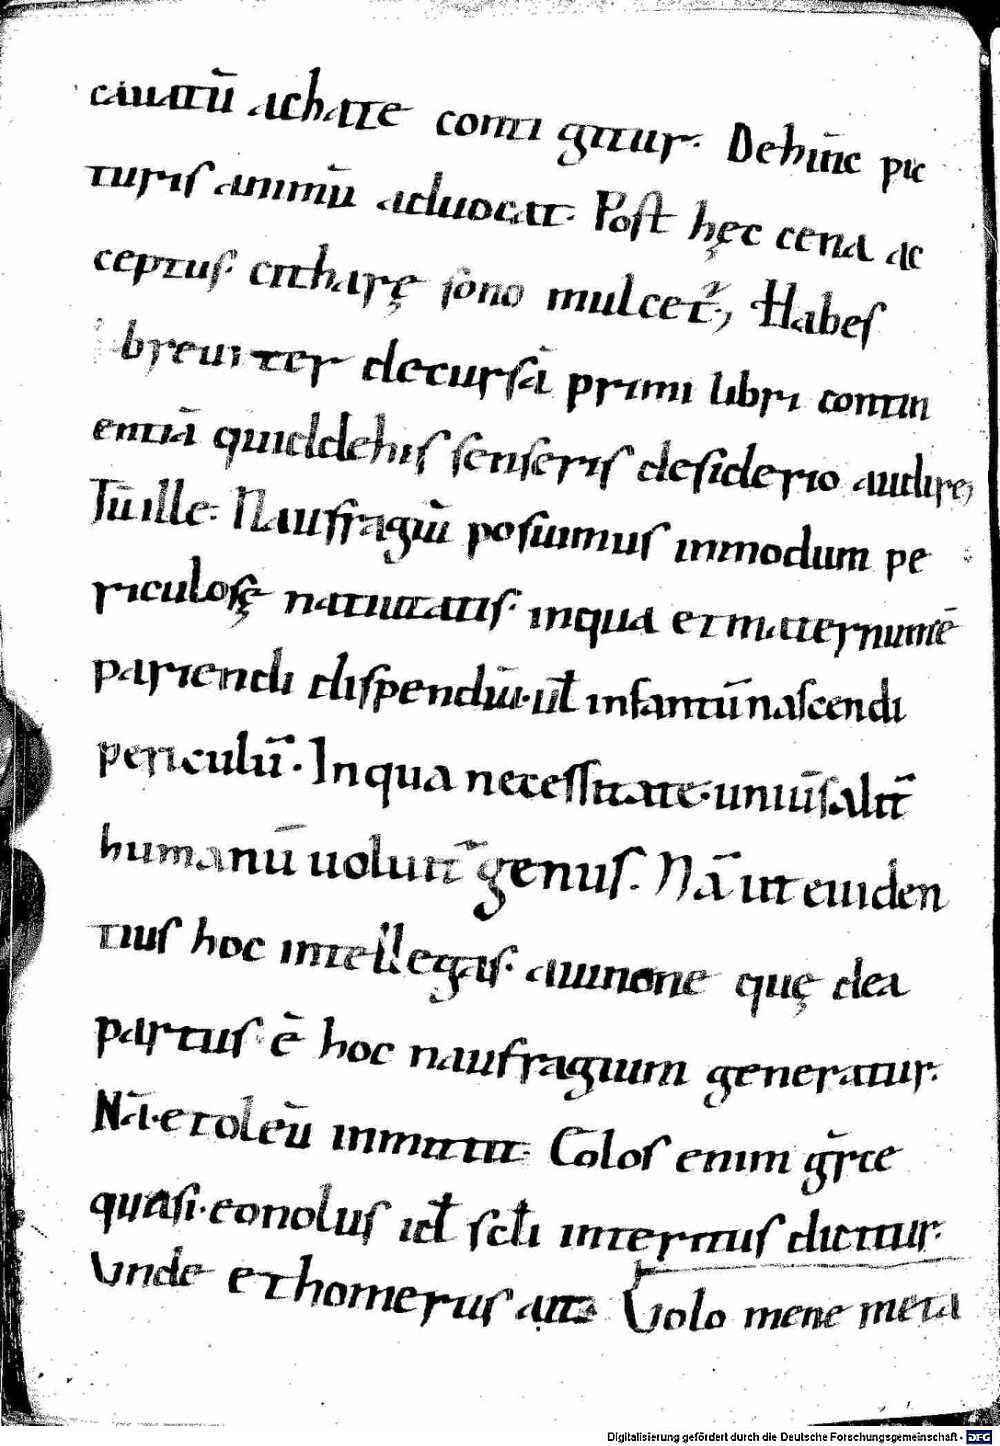 cauatū achate comi gitur. Dehīnc pic
turis animū aduocat. Post hęc cena ac
ceptus. citharę sono mulcet̃., Habes
breuiter decursā primi libri contin
entiā quiddehis senseris desiderio audire,
Tūille. Naufragiū posuimus inmodum pe
riculosę natiuitatis. inqua etmaternumē
pariendi dispendiū. uł infantūnascendi
periculū. Inqua necessitate. uniūsalit̃
humanū uoluit̃ genus. Nā ut euiden
tius hoc intellegas. aiunone quę dea
partus ē hoc naufragium generatur.
Nā. et oleū inmittit. Colos enim gr̄ce
quasi. eonolus idł scłi interitus dicitur.
Unde ethomerus ait Uolo mene meta
Digitalisierung gefördert durch die Deutsche Forschungsgemeinschaft - DFG